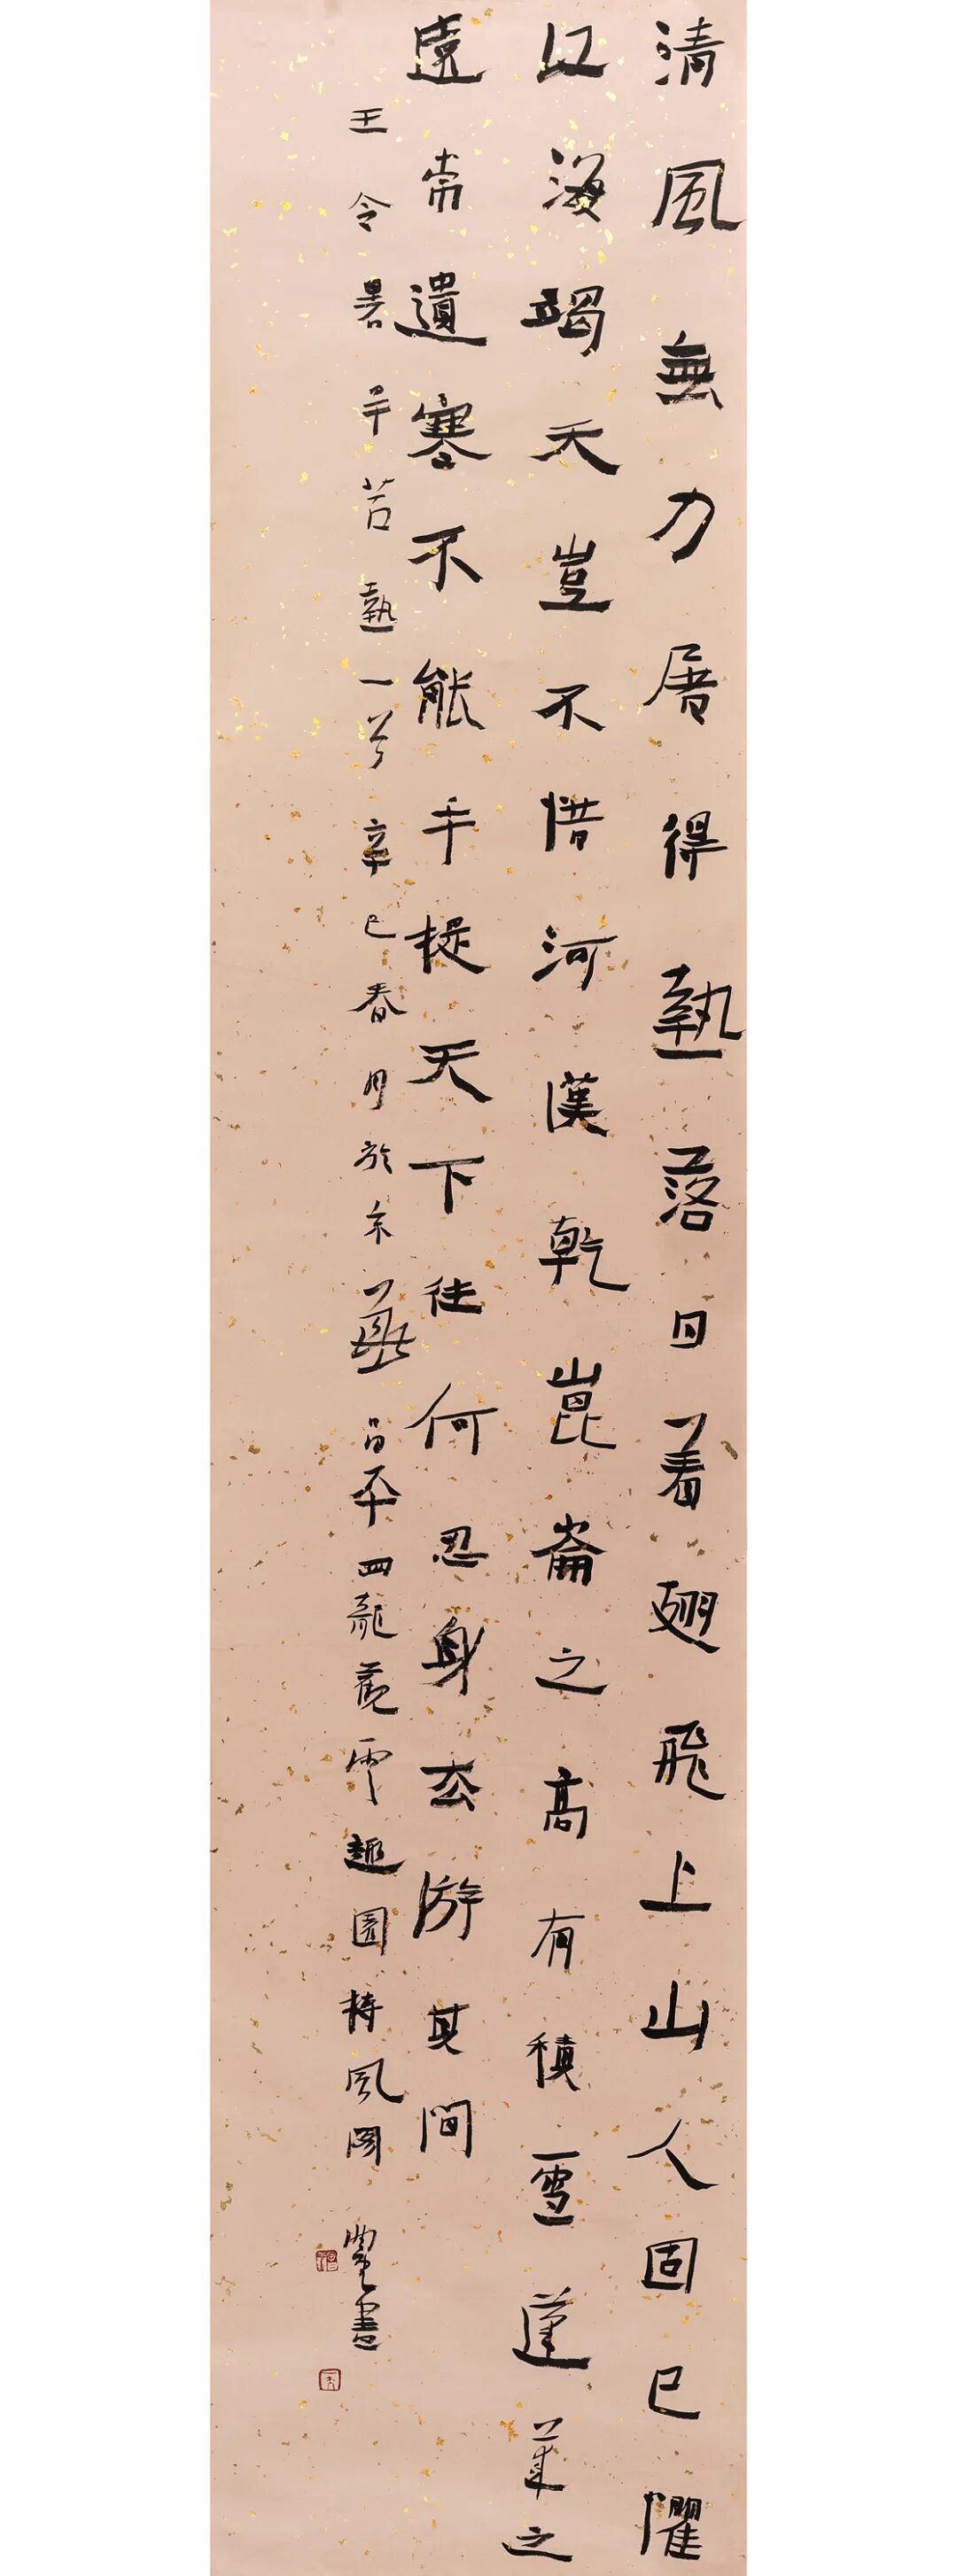 清風無力屠得熱落日着翅飛上山人固已懼
江海竭天豈不惜河漢乾崑崙之高有積雪蓬萊之
遠常遺寒不能手提天下往何忍身去游其間
王令暑旱苦熱一首辛巳春月於京華昌平四龍苑雲趣園持風閣
書